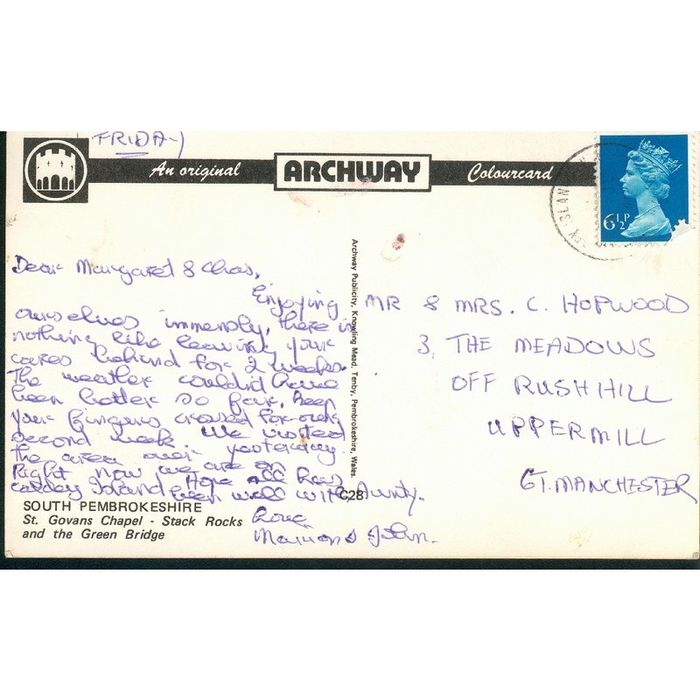 FRIDAY
An original ARCHWAY Colourcard
6½P
Dear Margaret & Chas,
Enjoying
ourselves immensly, there is
nothing like leaving your
cares behind for 2 weeks.
The weather couldn't have
been better so far, keep
your fingers crossed for our
second week. We visited
the area over yesterday.
Right now we are on
Caldey Island Hope all has
been well with Aunty.
Love
Marion & John.
MR & MRS. C. HOPWOOD
3, THE MEADOWS
OFF RUSH HILL
UPPERMILL
GT. MANCHESTER
Archway Publicity, Knowling Mead, Tenby, Pembrokeshire, Wales.
C28
SOUTH PEMBROKESHIRE
St. Govans Chapel - Stack Rocks
and the Green Bridge